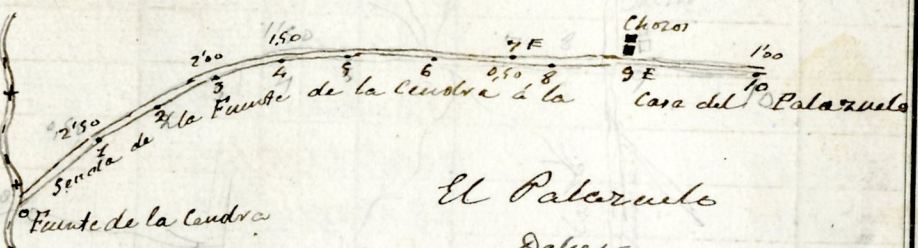 Chozos
2'50
2'00
1,50
7 E
1'00
0
1
2
3
4
5
6
0,50
8
9 E
10
Senda de la Fuente de la Cendra á la Casa del Palazuelo
Fuente de la Cendra
El Palazuelo